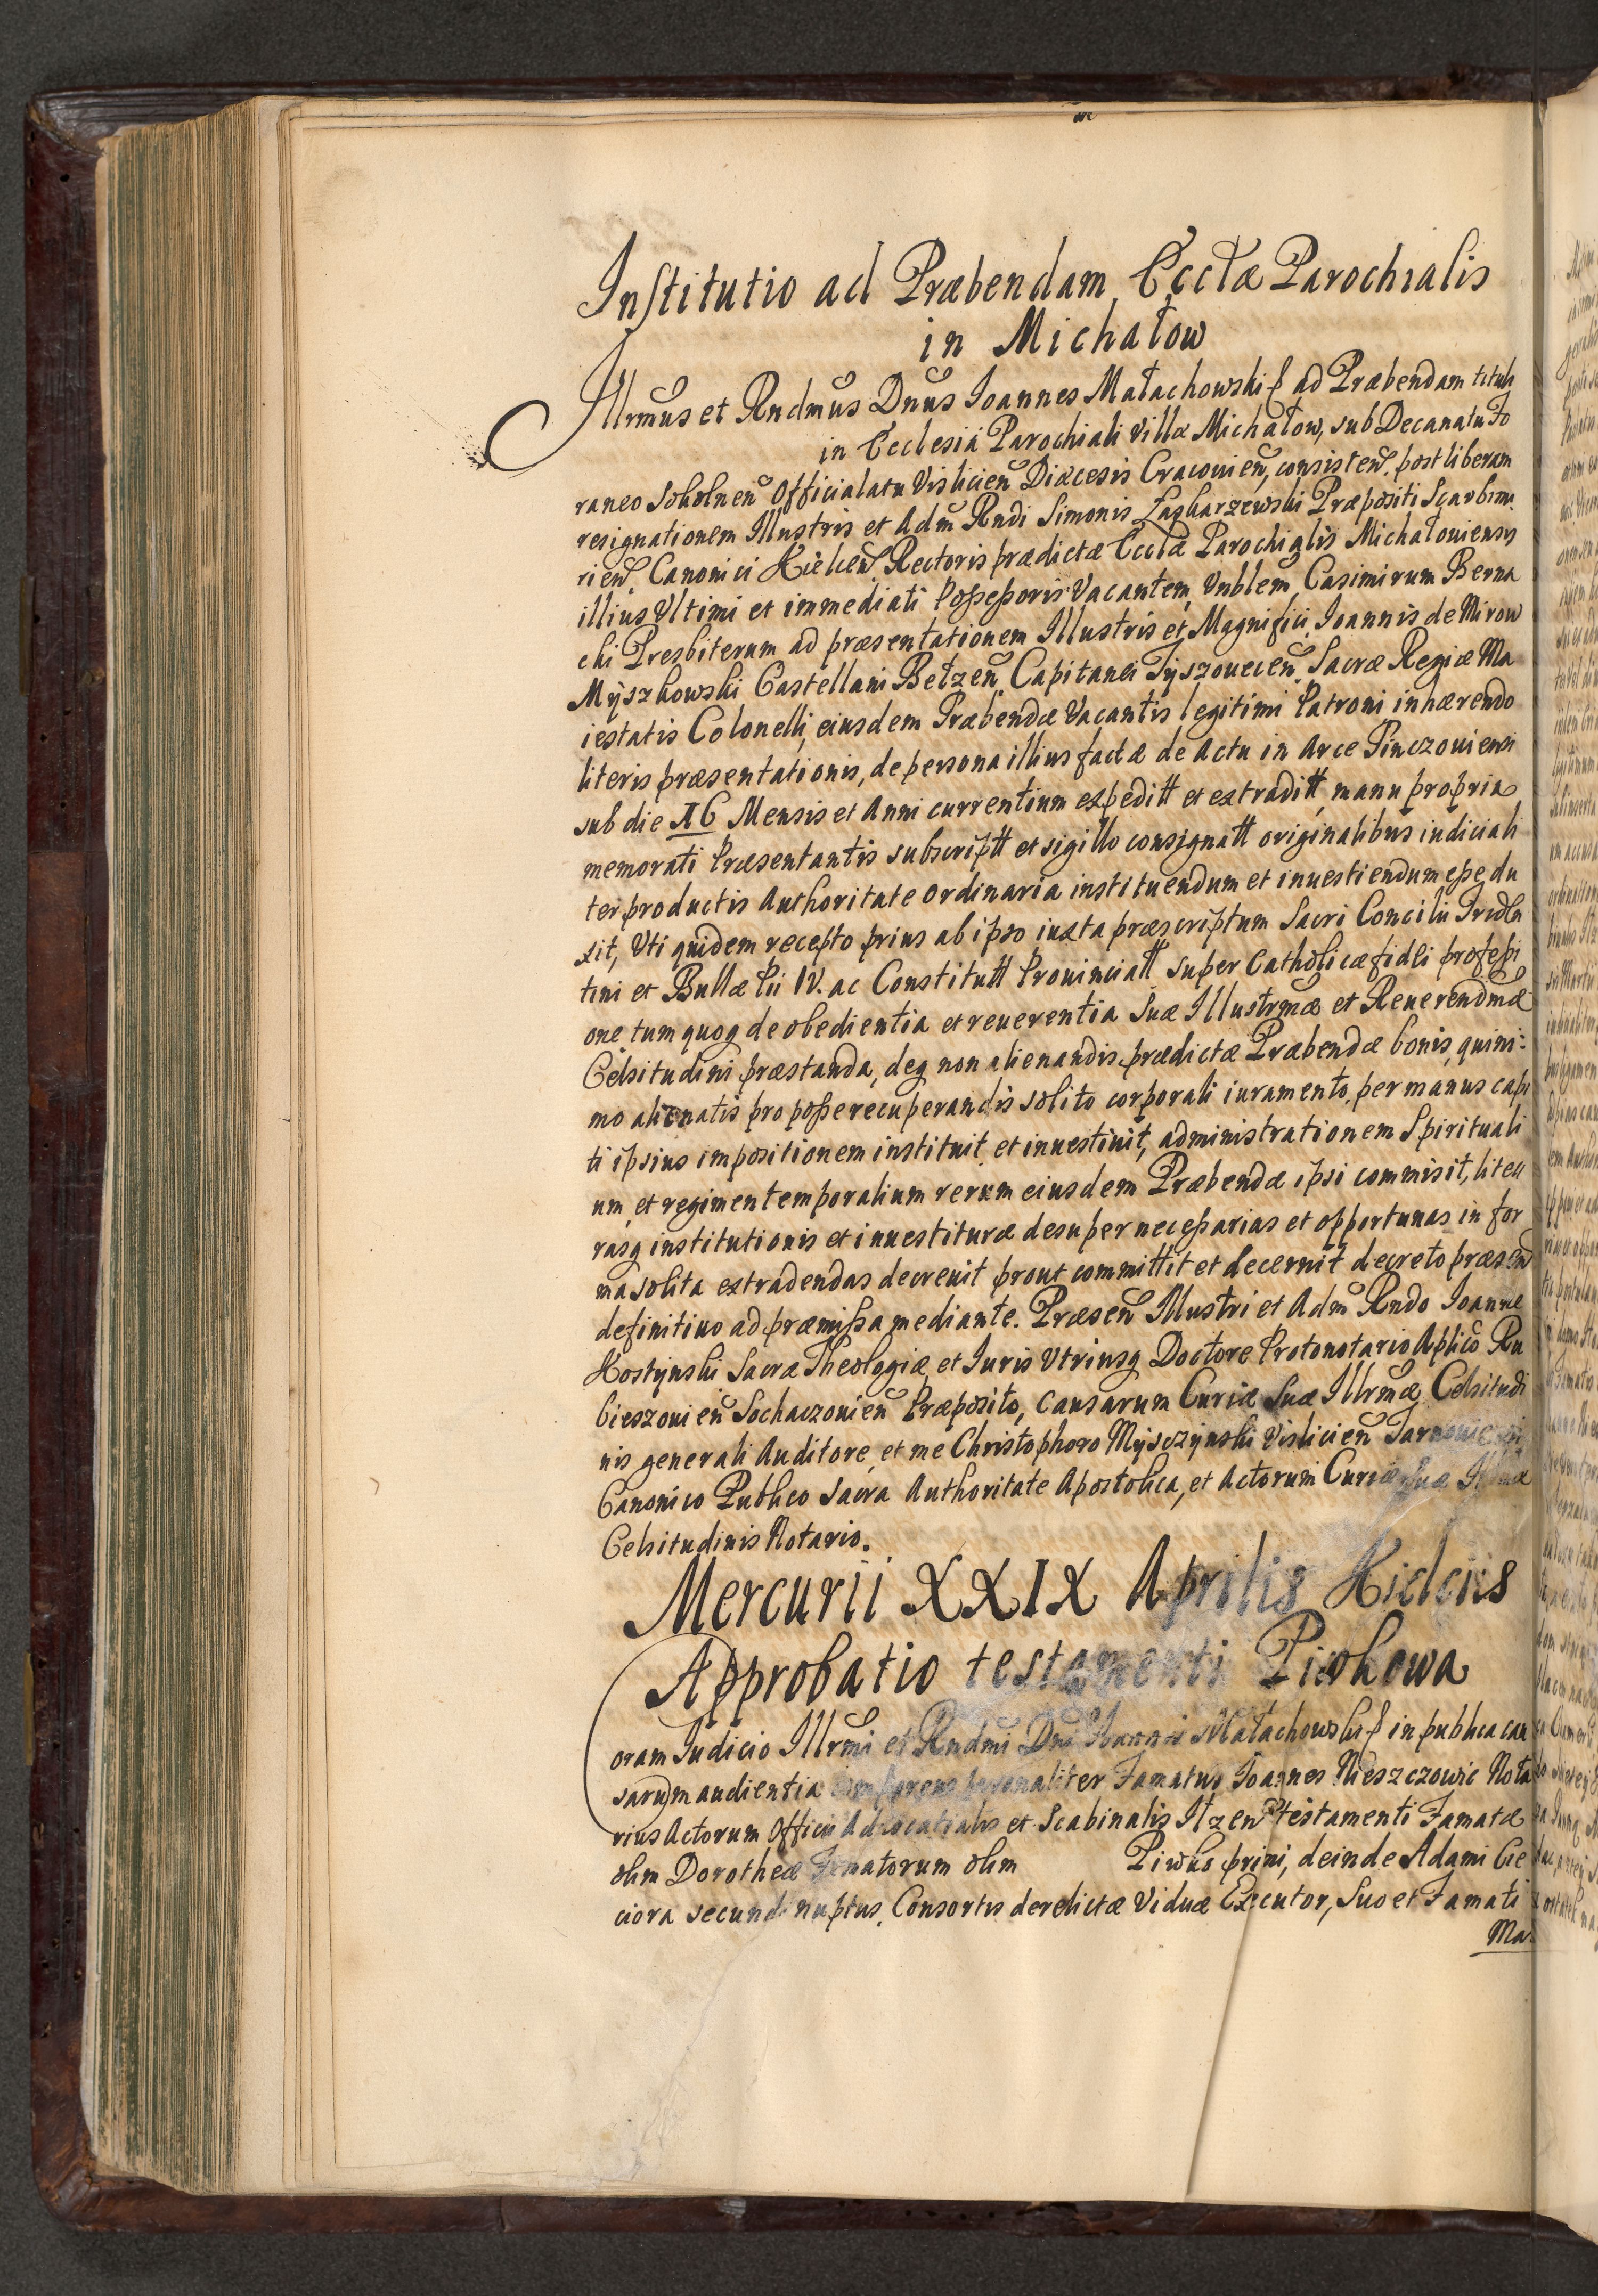 Institutio ad Præbendam Ecctæ Parochialis
in Michałow
Illrmus et Rndmus Dnus Ioannes Małachowski p ad Præbendam tituli
in Ecclesia Parochiali Villæ Michałow, sub Decanatu Fo
raneo Sokolnen Officialatu Vislicien Diæcesis Cracouien, consisten, post liberam
resignationem Illustris et Adm Rndi Simonis Præpositi
rien, Canonici Kielcen Rectoris prædictæ Ecctæ Parochialis Michałouiensis
illius Vltimi et immediati Possessoris Vacantem, Vnblem Casimirum Berna
cki Presbiterum ad præsentationem Illustris et Magnifici Ioannis de Mirow
Myszkowski Castellani Bełzen Capitanei Tyszouecen Sacræ Regiæ Ma
iestatis Colonelli, eiusdem Præbendæ Vacantis legitimi Patroni inhærendo
literis præsentationis, de persona illius factæ de Actu in Arce Pinczouiensi
sub die 16 Mensis et Anni currentium expeditt et extraditt, manu propria
memorati Præsentantis subscriptt et sigillo consignatt originalibus iudiciali
ter productis Authoritate ordinaria instituendum et inuestiendum esse du
xit, Vti quidem recepto prius ab ipso iuxta præscriptum Sacri Concilii Triden
tini et Bullæ Pii IV. ac Constitutt Prouinciatt super Catholicæ fidei professi
one tum quoq de obedientia et reuerentia Suæ Illustrmæ et Reuerendmæ
Celsitudini præstanda, deq non alienandis prædictæ Præbendæ bonis, quini:
mo alienatis pro posse recuperandis solito corporali iuramento, per manus capi
ti ipsius impositionem instituit et inuestiuit, administrationem Spirituali
um, et regimen temporalium rerum eiusdem Præbendæ ipsi commisit, lite
rasq institutionis et inuestituræ desuper necessarias et opportunas in for
ma solita extradendas decreuit prout committit et decernit decreto præsen
definitiuo ad præmissa mediante. Præsen Illustri et Adm Rndo Ioanne
Kostynski Sacræ Theologiæ et Iuris Vtriusq Doctore Protonotario Aplico Ru
bieszouien Sochaczouien Præposito, Causarum Curiæ Suæ Illrmæ Celsitudi
nis generali Auditore, et me Christophoro Mysczynski Vislicien Tarnouiensi
Canonico Publico Sacra Authoritate Apostolica, et Actorum Curiæ Suæ Illrmæ
Celsitudinis Notario.
Mercurii XXIX Aprilis Kielciis
Approbatio testamenti Piwkowa
Coram Iudicio Illrmi et Rndmi Dni Ioannis Małachowski p in publica cau
sarum audientia comparens personaliter Famatus Ioannes Nieszczowic Nota
rius Actorum Officii Aduocatialis et Scabinalis Itzen testamenti Famatæ
olim Dorotheæ Famatorum olim Piwko primi, deinde Adami Cie
ciora secundi nuptus, Consortis derelictæ Viduæ Executor, Suo et Famati
Ma